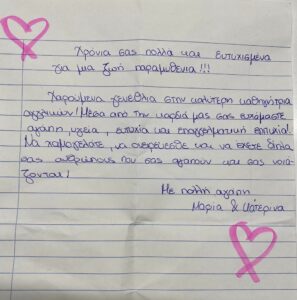 Χρόνια σας πολλά και ευτυχισμένα
για μια ζωή παραμυθένια!!!
Χαρούμενα γενέθλια στην καλύτερη καθηγήτρια
αγγλικών! Μέσα από την καρδιά μας σας ευχόμαστε
αγάπη, υγεία, ευτυχία και επαγγελματική επιτυχία!
Να χαμογελάτε, να ονειρεύεσθε και να έχετε δίπλα
σας ανθρώπους που σας αγαπούν και σας νοιά-
ζονται!
Με πολλή αγάπη
Μαρία & Κατερίνα